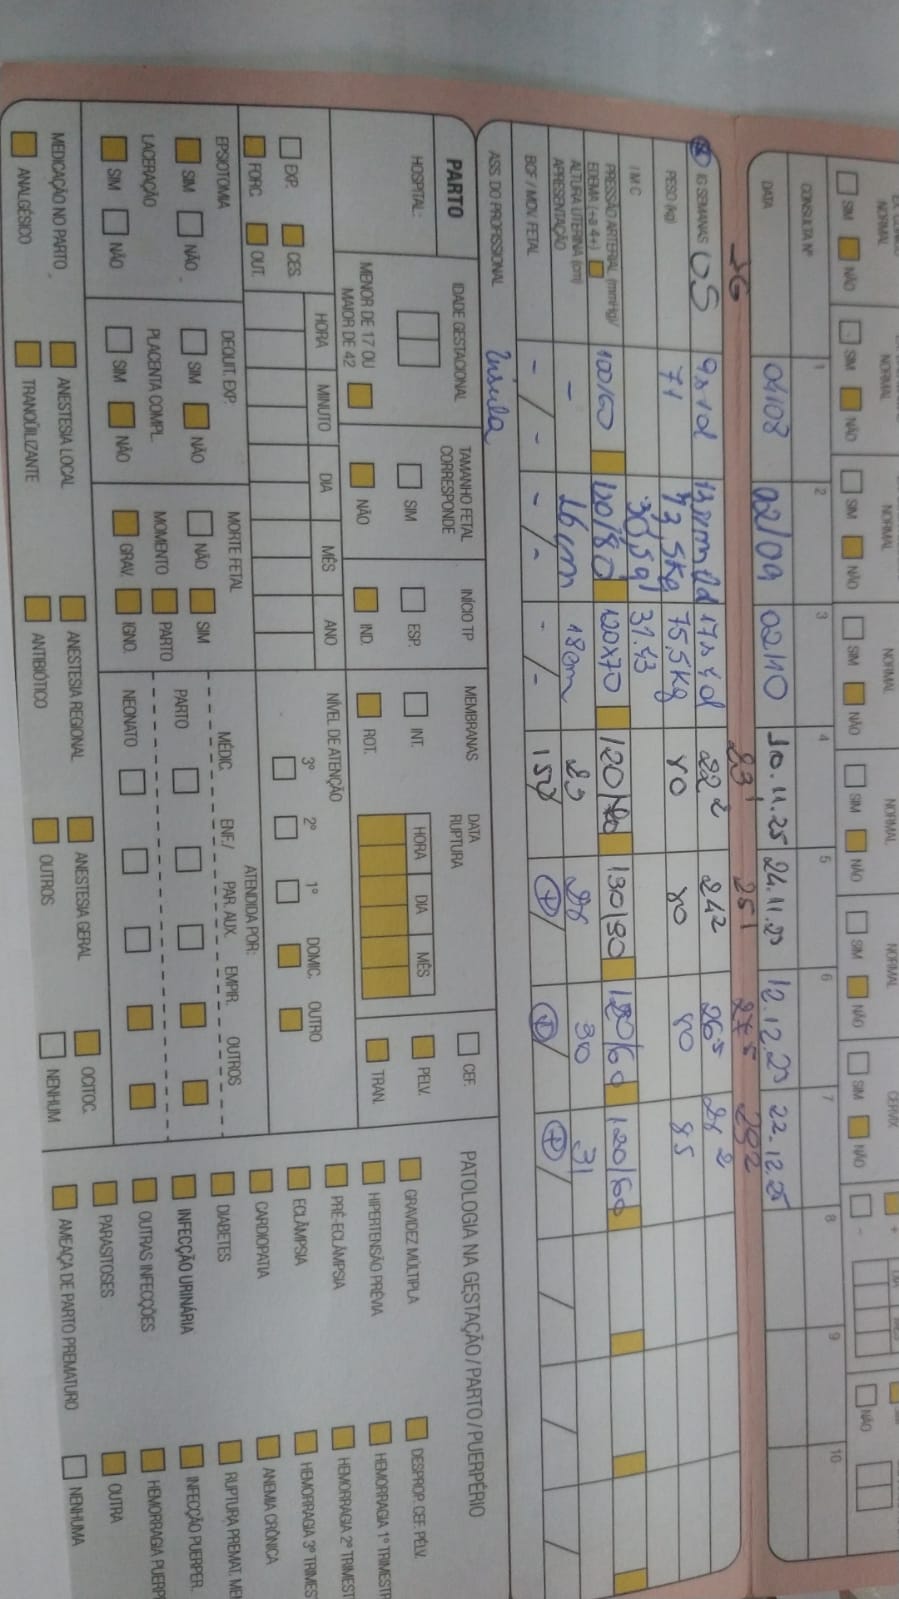 NORMAL NORMAL NORMAL NORMAL NORMAL NORMAL CERVIX
SIM NÃO SIM NÃO SIM NÃO SIM NÃO SIM NÃO SIM NÃO SIM NÃO + - NÃO
CONSULTA Nº 1 2 3 4 5 6 7 8 9 10
DATA 04/08 02/09 02/10 10.11.25 24.11.25 12.12.25 22.12.25
JG 23¹ 25¹ 27⁵ 29²
IG SEMANAS US 9s1d 17s4d 22² 24² 26⁵ 28²
PESO (kg) 71 73,5kg 75,5kg 80 80 80 85
I M C 30,59 31.43
PRESSÃO ARTERIAL (mmHg)/ 100/60 120/80 120x70 130/90 120/60 120/60
EDEMA (+a 4+)
ALTURA UTERINA (cm) - 16cm 18cm 28 30 31
APRESENTAÇÃO
BCF / MOV. FETAL - / - - / - - / - 158 (+)/ (+)/ (+)/
ASS. DO PROFISSIONAL Úrsula
PARTO
HOSPITAL:
IDADE GESTACIONAL
MENOR DE 17 OU
MAIOR DE 42
TAMANHO FETAL
CORRESPONDE
SIM
NÃO
INÍCIO TP
ESP.
IND.
MEMBRANAS
INT.
ROT.
DATA
RUPTURA
HORA DIA MÊS
CEF.
PELV.
TRAN.
EXP. CES.
FORC. OUT.
HORA MINUTO DIA MÊS ANO
NÍVEL DE ATENÇÃO
3º 2º 1º DOMIC. OUTRO
EPSIOTOMIA
SIM NÃO
LACERAÇÃO
SIM NÃO
DEQUIT. EXP.
SIM NÃO
PLACENTA COMPL.
SIM NÃO
MORTE FETAL
NÃO SIM
MOMENTO PARTO
GRAV. IGNO.
ATENDIDA POR:
MÉDIC. ENF./ PAR. AUX. EMPIR. OUTROS
PARTO
NEONATO
MEDICAÇÃO NO PARTO
ANESTESIA LOCAL ANESTESIA REGIONAL ANESTESIA GERAL OCITOC.
ANALGÉSICO TRANQÜILIZANTE ANTIBIÓTICO OUTROS NENHUM
PATOLOGIA NA GESTAÇÃO / PARTO / PUERPÉRIO
GRAVIDEZ MÚLTIPLA DESPROP. CEF. PÉLV.
HIPERTENSÃO PRÉVIA HEMORRAGIA 1º TRIMESTR
PRÉ-ECLÂMPSIA HEMORRAGIA 2º TRIMEST
ECLÂMPSIA HEMORRAGIA 3º TRIMES
CARDIOPATIA ANEMIA CRÔNICA
DIABETES RUPTURA PREMAT. ME
INFECÇÃO URINÁRIA INFECÇÃO PUERPER.
OUTRAS INFECÇÕES HEMORRAGIA PUERP
PARASITOSES OUTRA
AMEAÇA DE PARTO PREMATURO NENHUMA